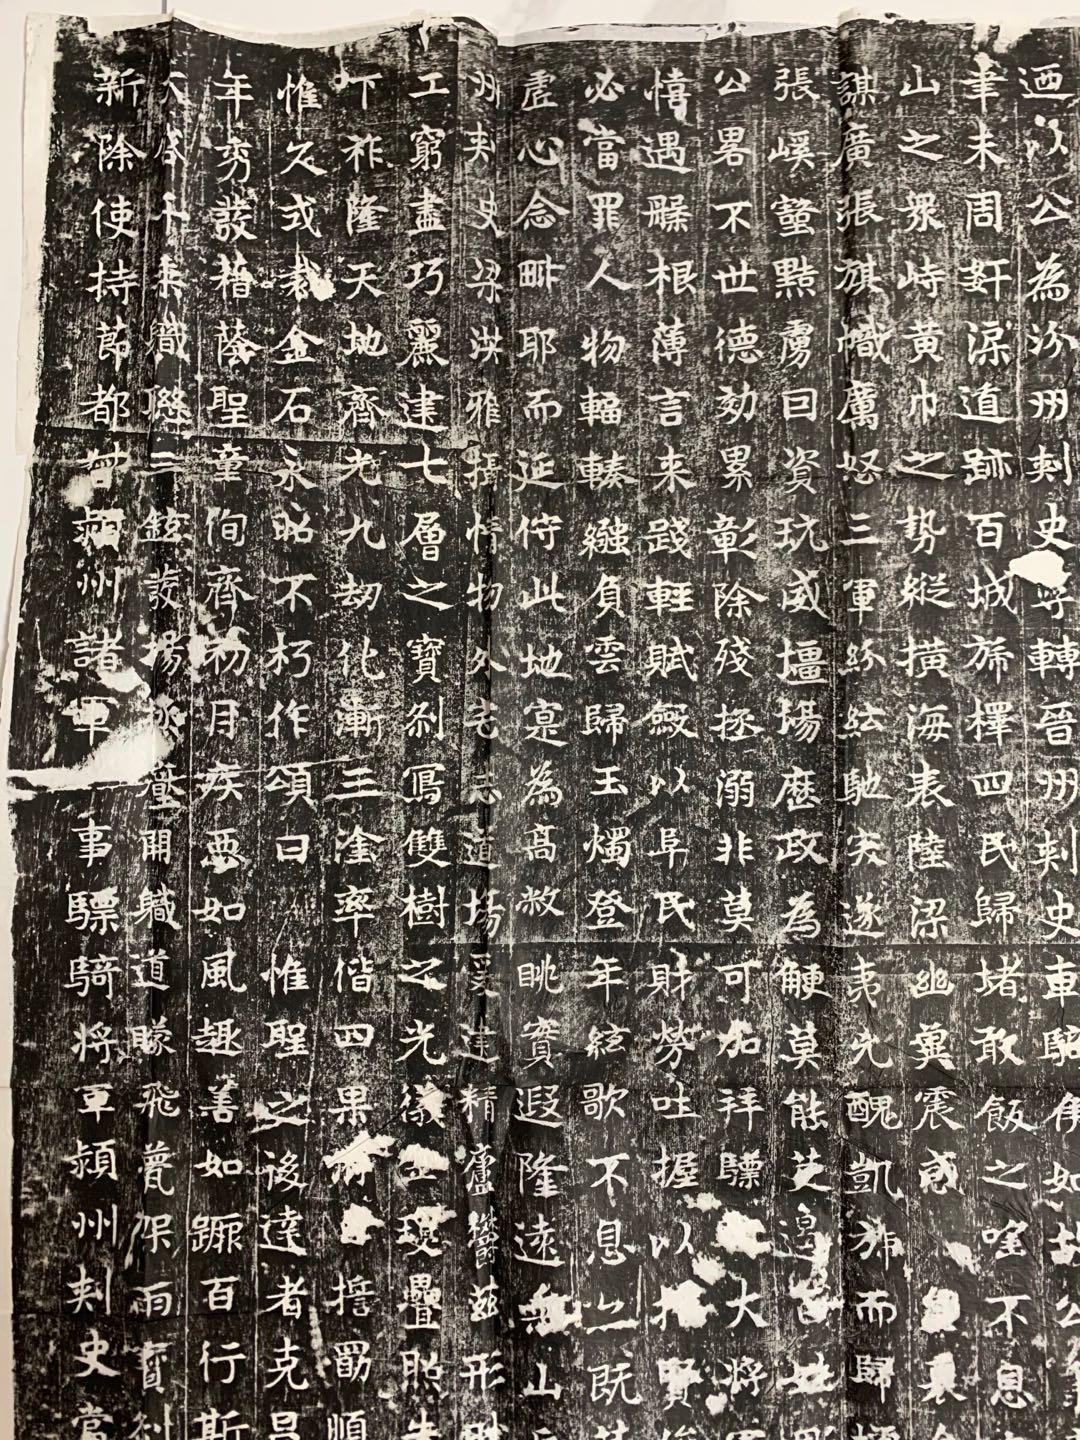 迺以公為汾州刺史尋轉晉州刺史車駱雋如故公
聿未周奸深道跡百城旆檡四民歸堵敢飯之唑不息
山之眾峙黃巾之势縱橫海表陸梁幽冀震惑
謀廣張旗幟厲怒三軍紛紜馳突遂夷尤醜凱旆而歸
張嶬蠻黠虜曰資玩威壃埸歷政為鯁莫能芟邊
公畧不世德効累彰除殘拯溺非莫可加拜驃大將軍
憘遇騤根薄言來踐輊賦斂以阜民財勞吐握以招賢
必當罪人物輻輳繈負雲歸玉燭登年絃歌不息公既
虗心念畔耶而延佇此地寔為高敝眺賓遐隆遠無山
州刺史梁洪雅攝情物外志道場爰建精廬茲形
工窮盡巧麗建七層之寶剎寫雙樹之光儀工瓊疊照
下祚隆天地齊光九劫化漸三淦率偕四果擔罰順
惟久或裁金石永昭不朽作頌曰惟聖之後達者克昌
年秀發藉蔭聖童佝齊初月疾惡如風趣善如蹶百行斯
職聯三鉉發埸壘開職道矇飛甍架雨寶剎
新除使持節都督潁州諸軍事驃騎將軍潁州刺史當